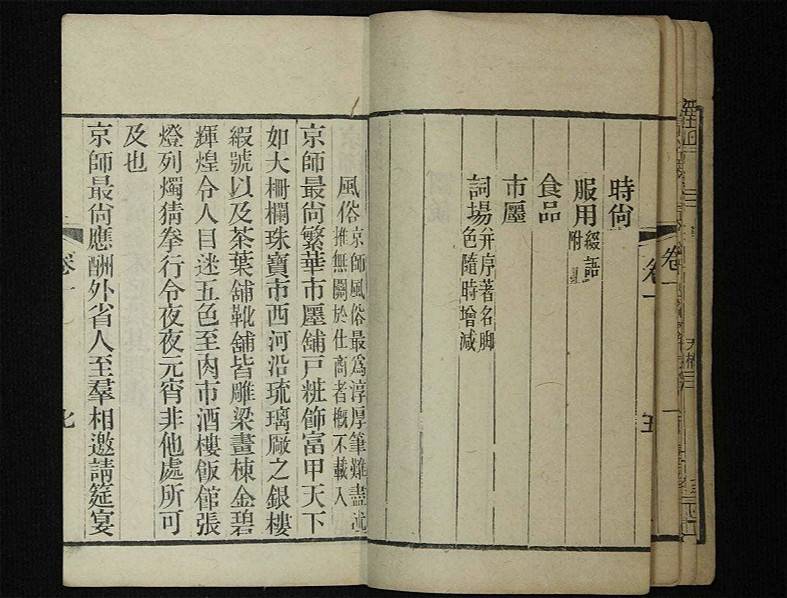 時尙
服用 綴語附見
食品
市廛
詞場 幷序著名脚
色隨時增減
卷一
五
卷一
風俗 京師風俗最爲淳厚筆難盡述
推無關於仕商者槪不載入
京師最尙繁華市廛舖戶粧飾富甲天下
如大柵欄珠寶市西河沿琉璃厰之銀樓
緞號以及茶葉舖靴舖皆雕梁畫棟金碧
輝煌令人目迷五色至肉市酒樓飯館張
燈列燭猜拳行令夜夜元宵非他處所可
及也
京師最尙應酬外省人至羣相邀請筵宴
卷一